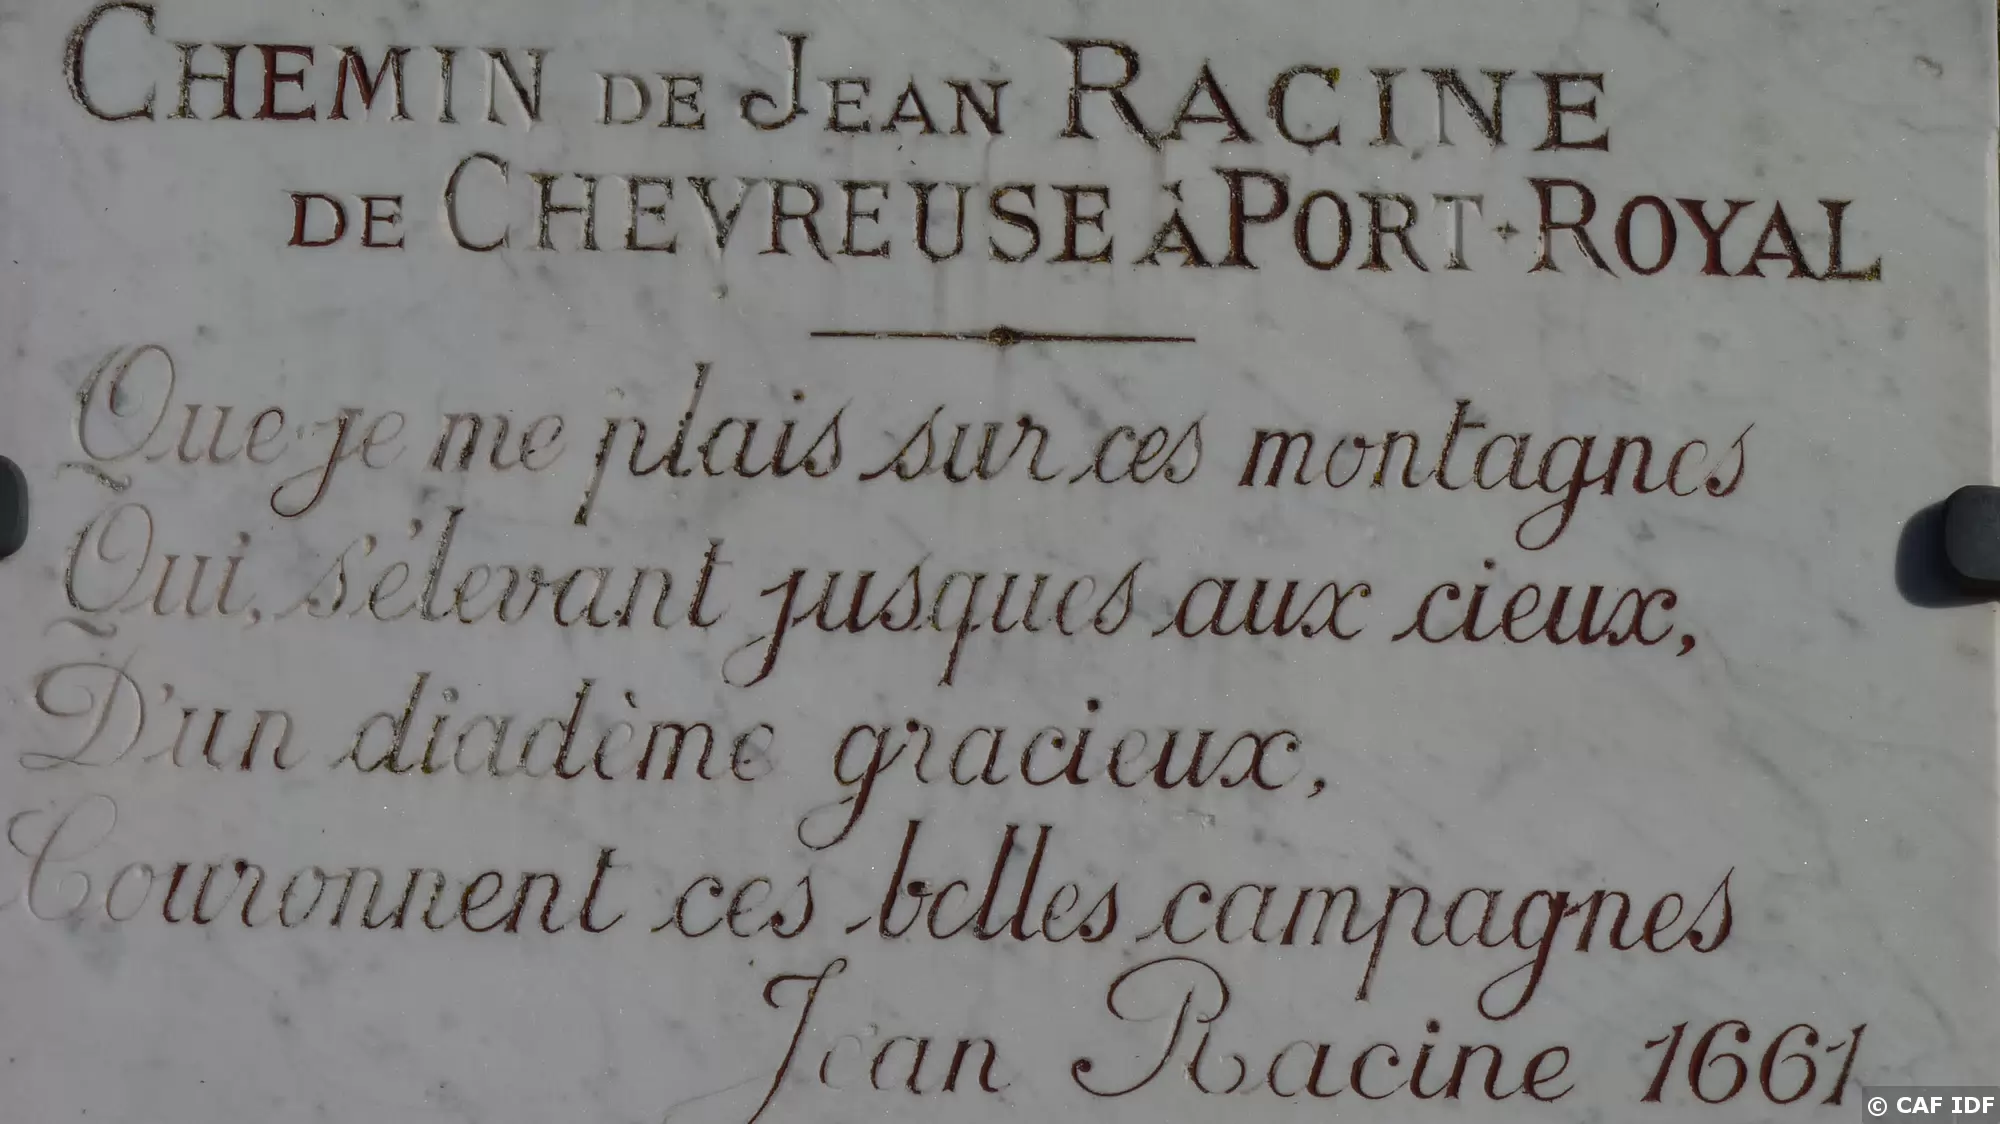 CHEMIN DE JEAN RACINE
DE CHEVREUSE À PORT-ROYAL
Que je me plais sur ces montagnes
Qui, s'élevant jusques aux cieux,
D'un diadème gracieux,
Couronnent ces belles campagnes
Jean Racine 1661
© CAF IDF